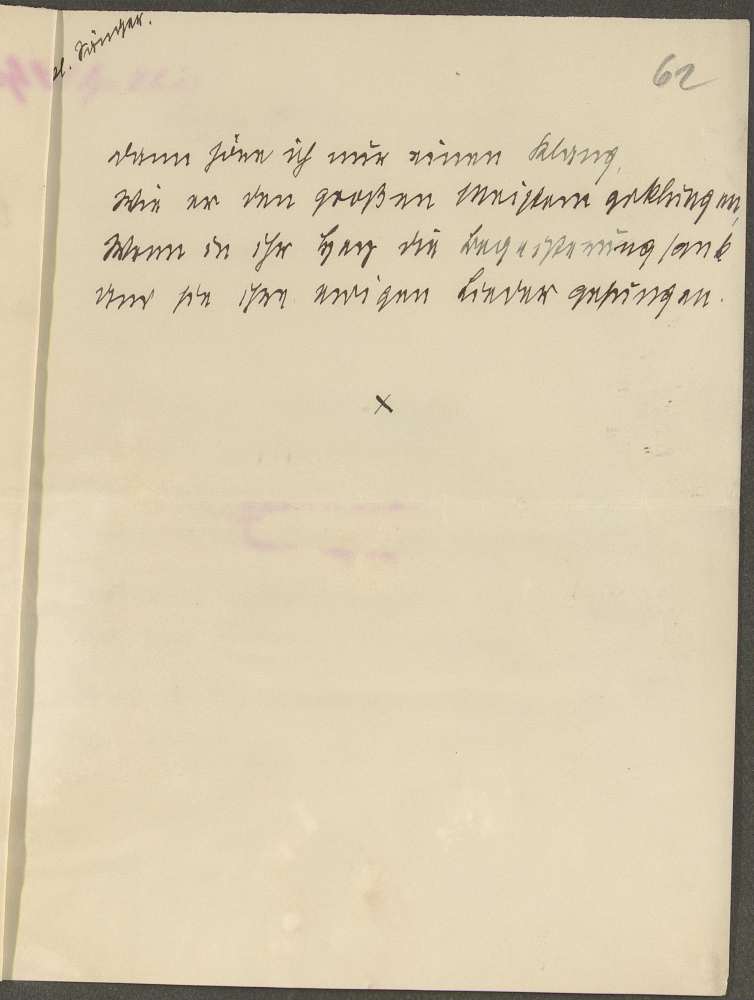 Sänger.
62
dann höre ich nur einen Klang,
Wie er den großen Meistern geklungen,
Wenn in ihr Herz die Begeisterung sank
Und sie ihre ewigen Lieder gesungen.
x